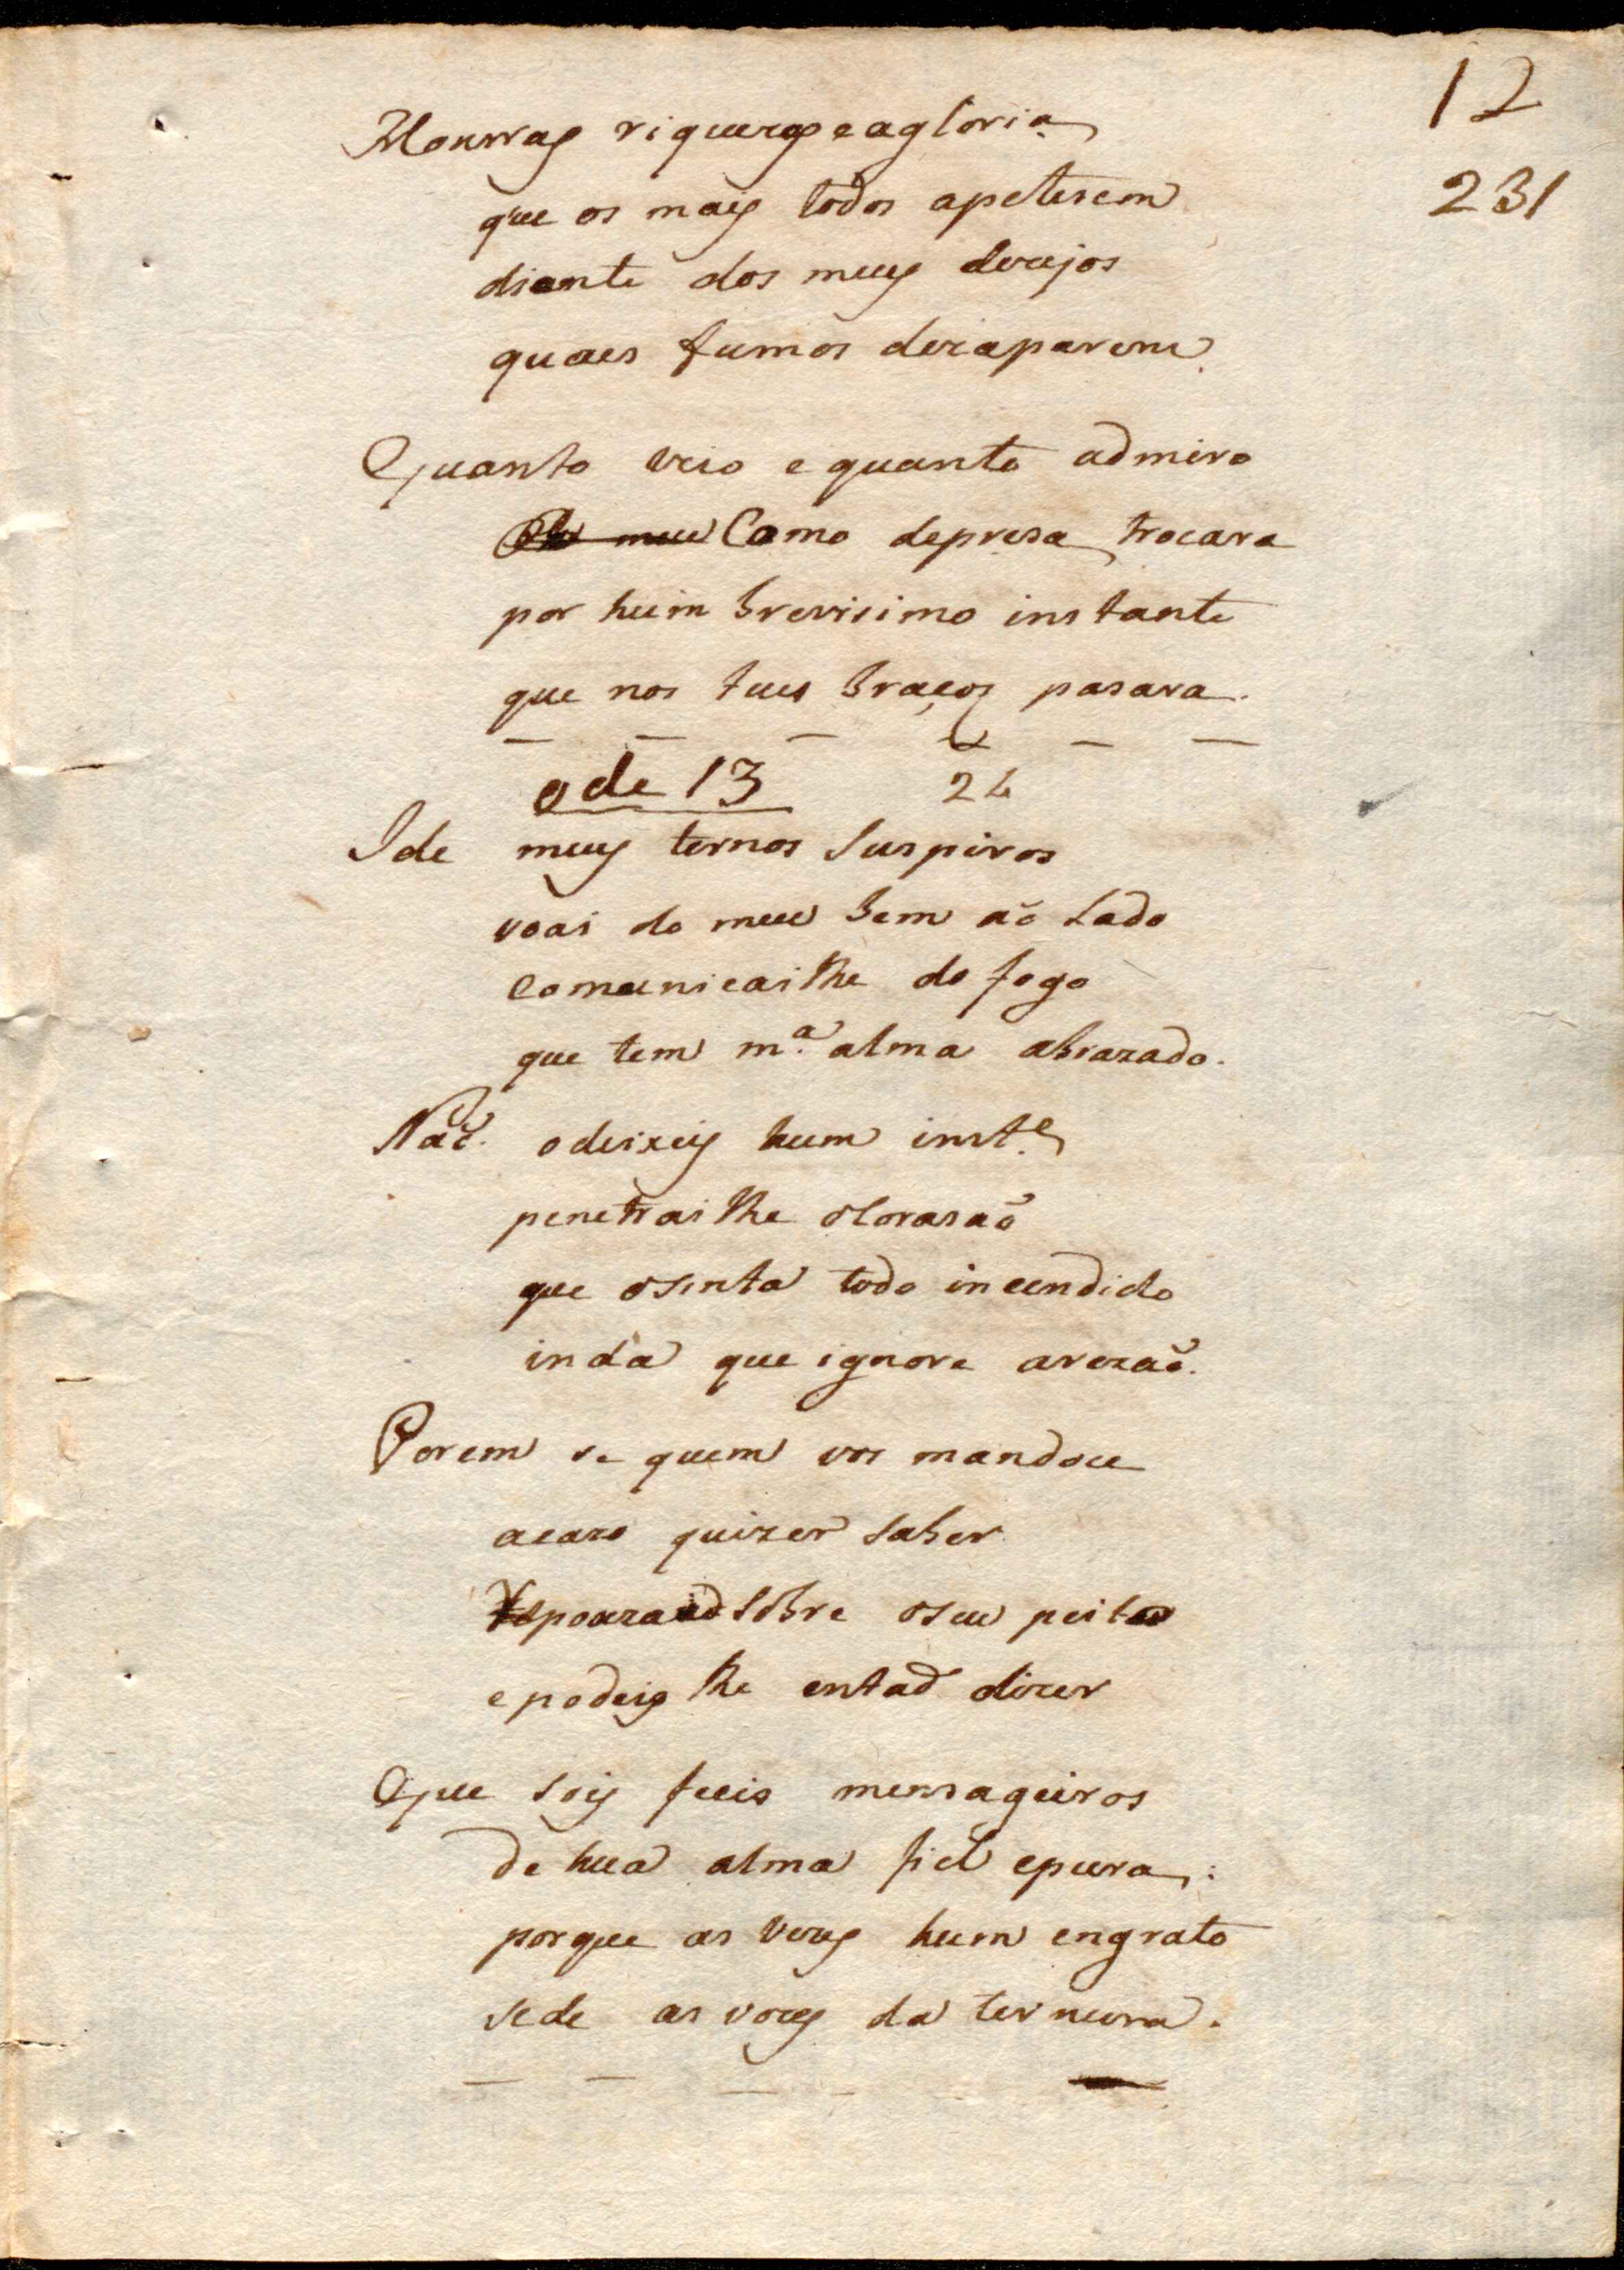 12
231
Honrras riquezas e a gloria
que os mais todos apetesem
diante dos meus dezejos
quaes fumos dezaparem
Quanto veio e quanto admiro
Como depresa trocara
por huim brevisimo instante
que nos tues braços pasara.
ode 13 24
Ide meus ternos suspiros
voai do meu bem aõ lado
comunicailhe do fogo
que tem m.ª alma abrazado.
Naõ o deixeis hum inst.e
penetrailhe o Corasaõ
que o sinta todo incendido
inda que ignore a rezaõ.
Porem se quem vos mandou
acazo quizer saber
repouzai sobre o seu peito
e podeis lhe entaõ dizer
Que sois fieis mensageiros
de hua alma fiel e pura;
porque as vezes hum engrato
sede as vozes da ternura.